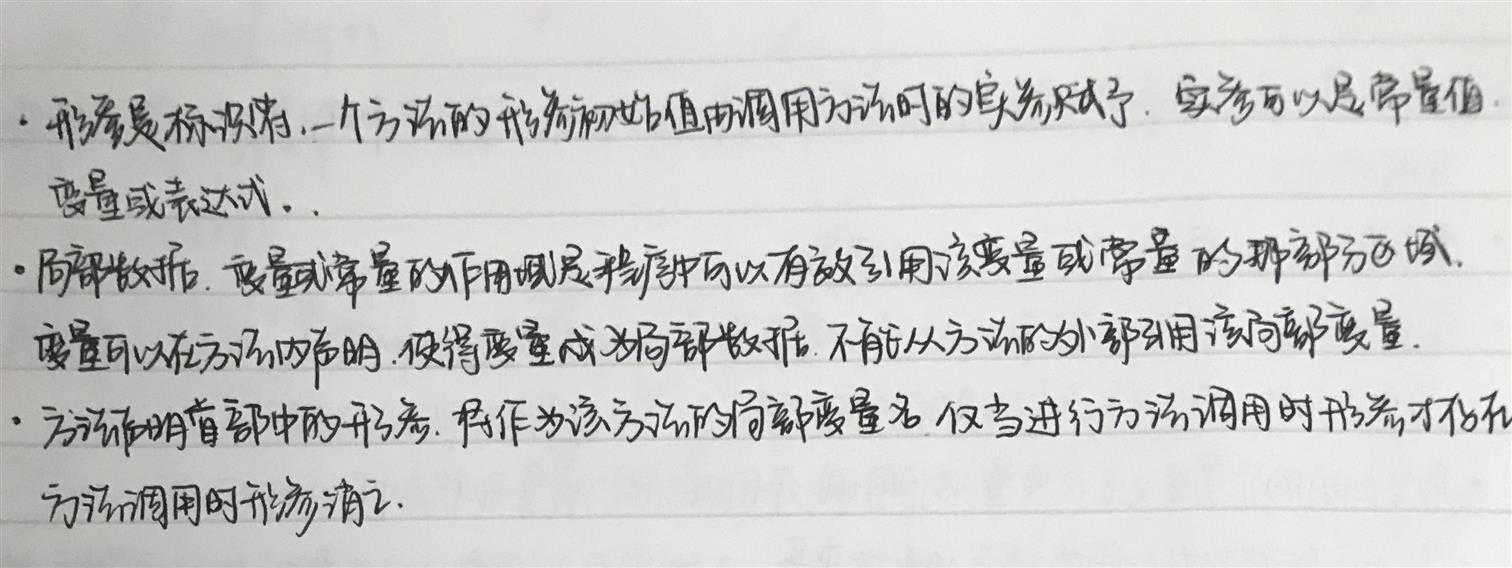 ·形参是标识符,一个方法的形参初始值由调用方法时的实参赋予.实参可以是常量值
变量或表达式..
·局部数据.变量或常量的作用域是程序中可以有效引用该变量或常量的那部分区域.
变量可以在方法内声明.使得变量成为局部数据.不能从方法的外部引用该局部变量.
·方法声明首部中的形参.将作为该方法的局部变量名.仅当进行方法调用时形参才存在
方法调用时形参消亡.